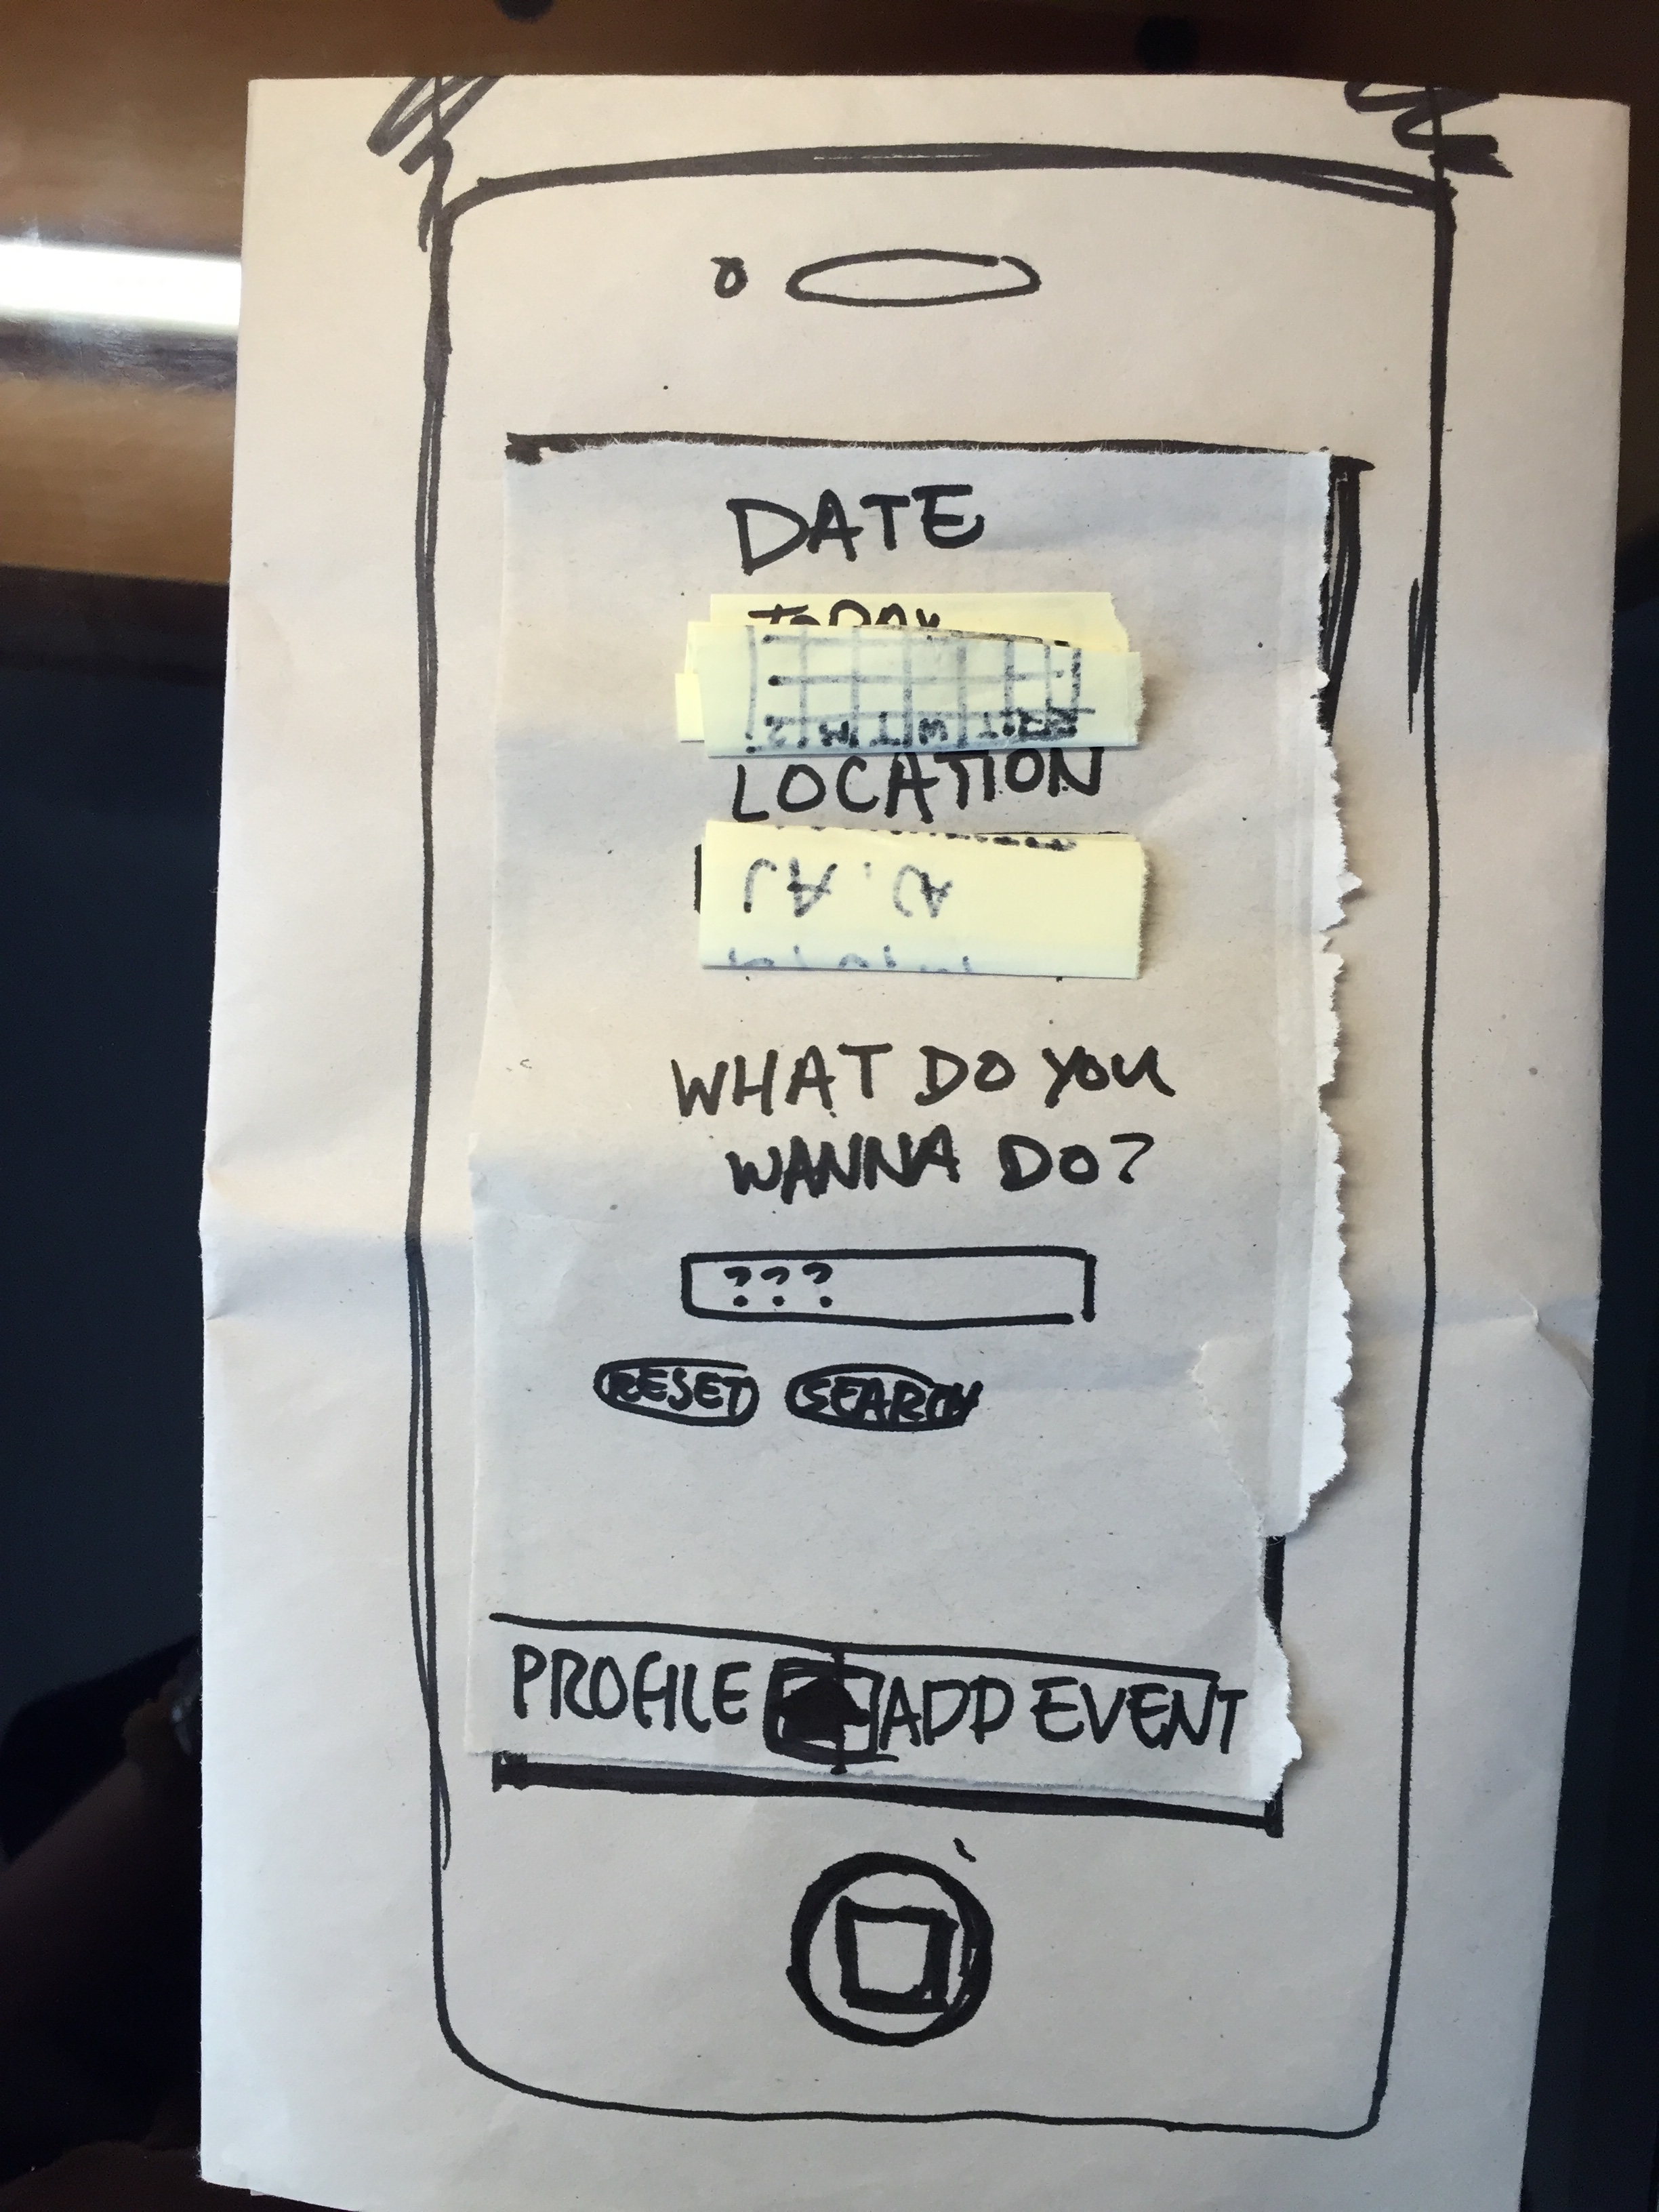 DATE
TODAY
LOCATION
WHAT DO YOU
WANNA DO?
???
RESET SEARCH
PROFILE ADD EVENT